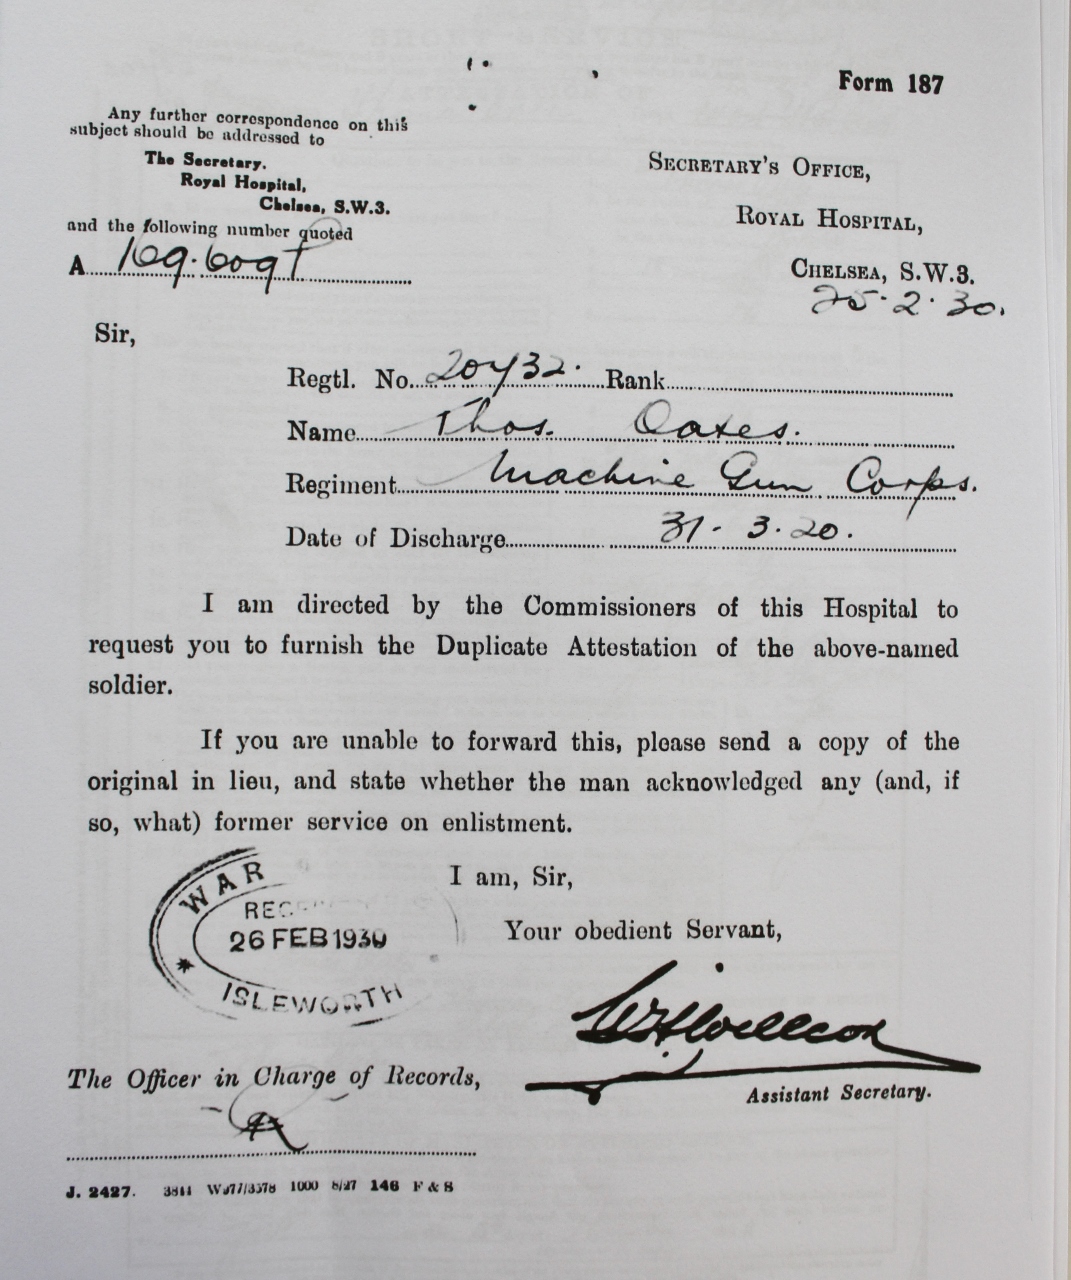 Form 187
Any further correspondence on this
subject should be addressed to
The Secretary.
Royal Hospital,
Chelsea, S.W.3.
and the following number quoted
A
Secretary's Office,
Royal Hospital,
Chelsea, S.W.3.
25.2.30.
Sir,
Regtl. No. 20732. Rank
Name Thos. Oates.
Regiment Machine Gun Corps.
Date of Discharge 31.3.20.
I am directed by the Commissioners of this Hospital to
request you to furnish the Duplicate Attestation of the above-named
soldier.
If you are unable to forward this, please send a copy of the
original in lieu, and state whether the man acknowledged any (and, if
so, what) former service on enlistment.
I am, Sir,
Your obedient Servant,
WAR
26 FEB 1930
ISLEWORTH
Willcox
Assistant Secretary.
The Officer in Charge of Records,
J. 2427. 1000 8/27 146 F & S